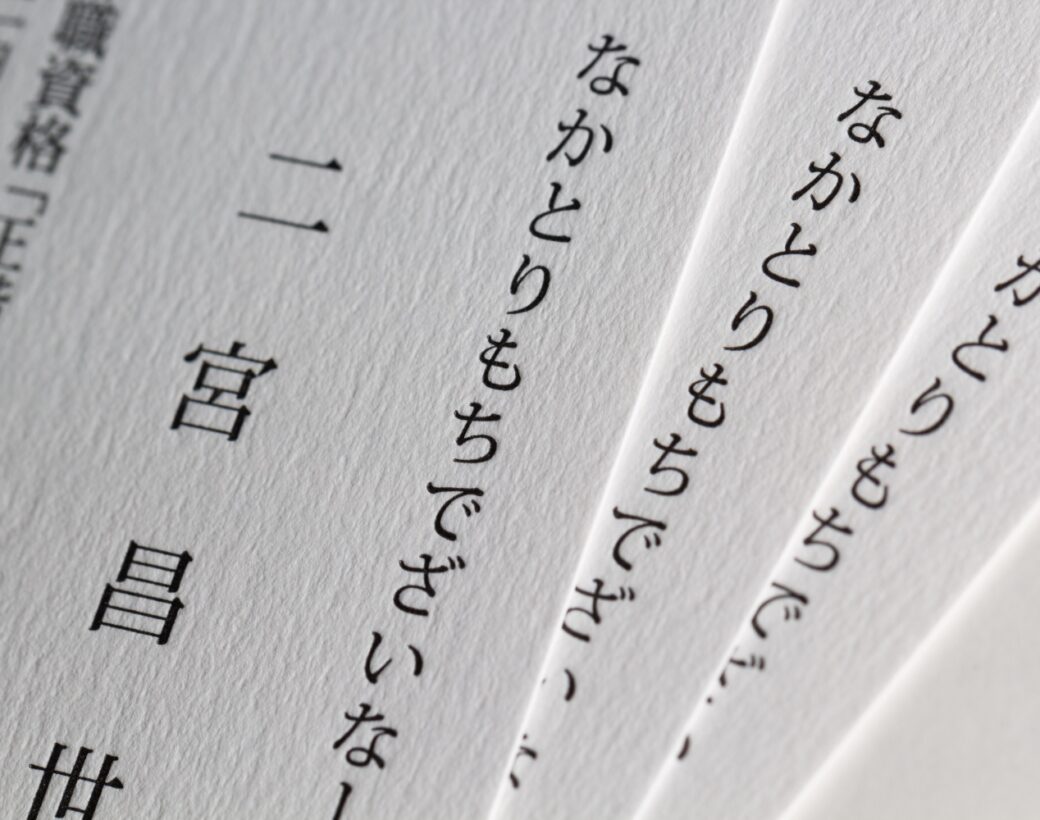 なかとりもちでざいなー
二宮昌世
職資格「正
なかとりもちでざい
かとりもちで